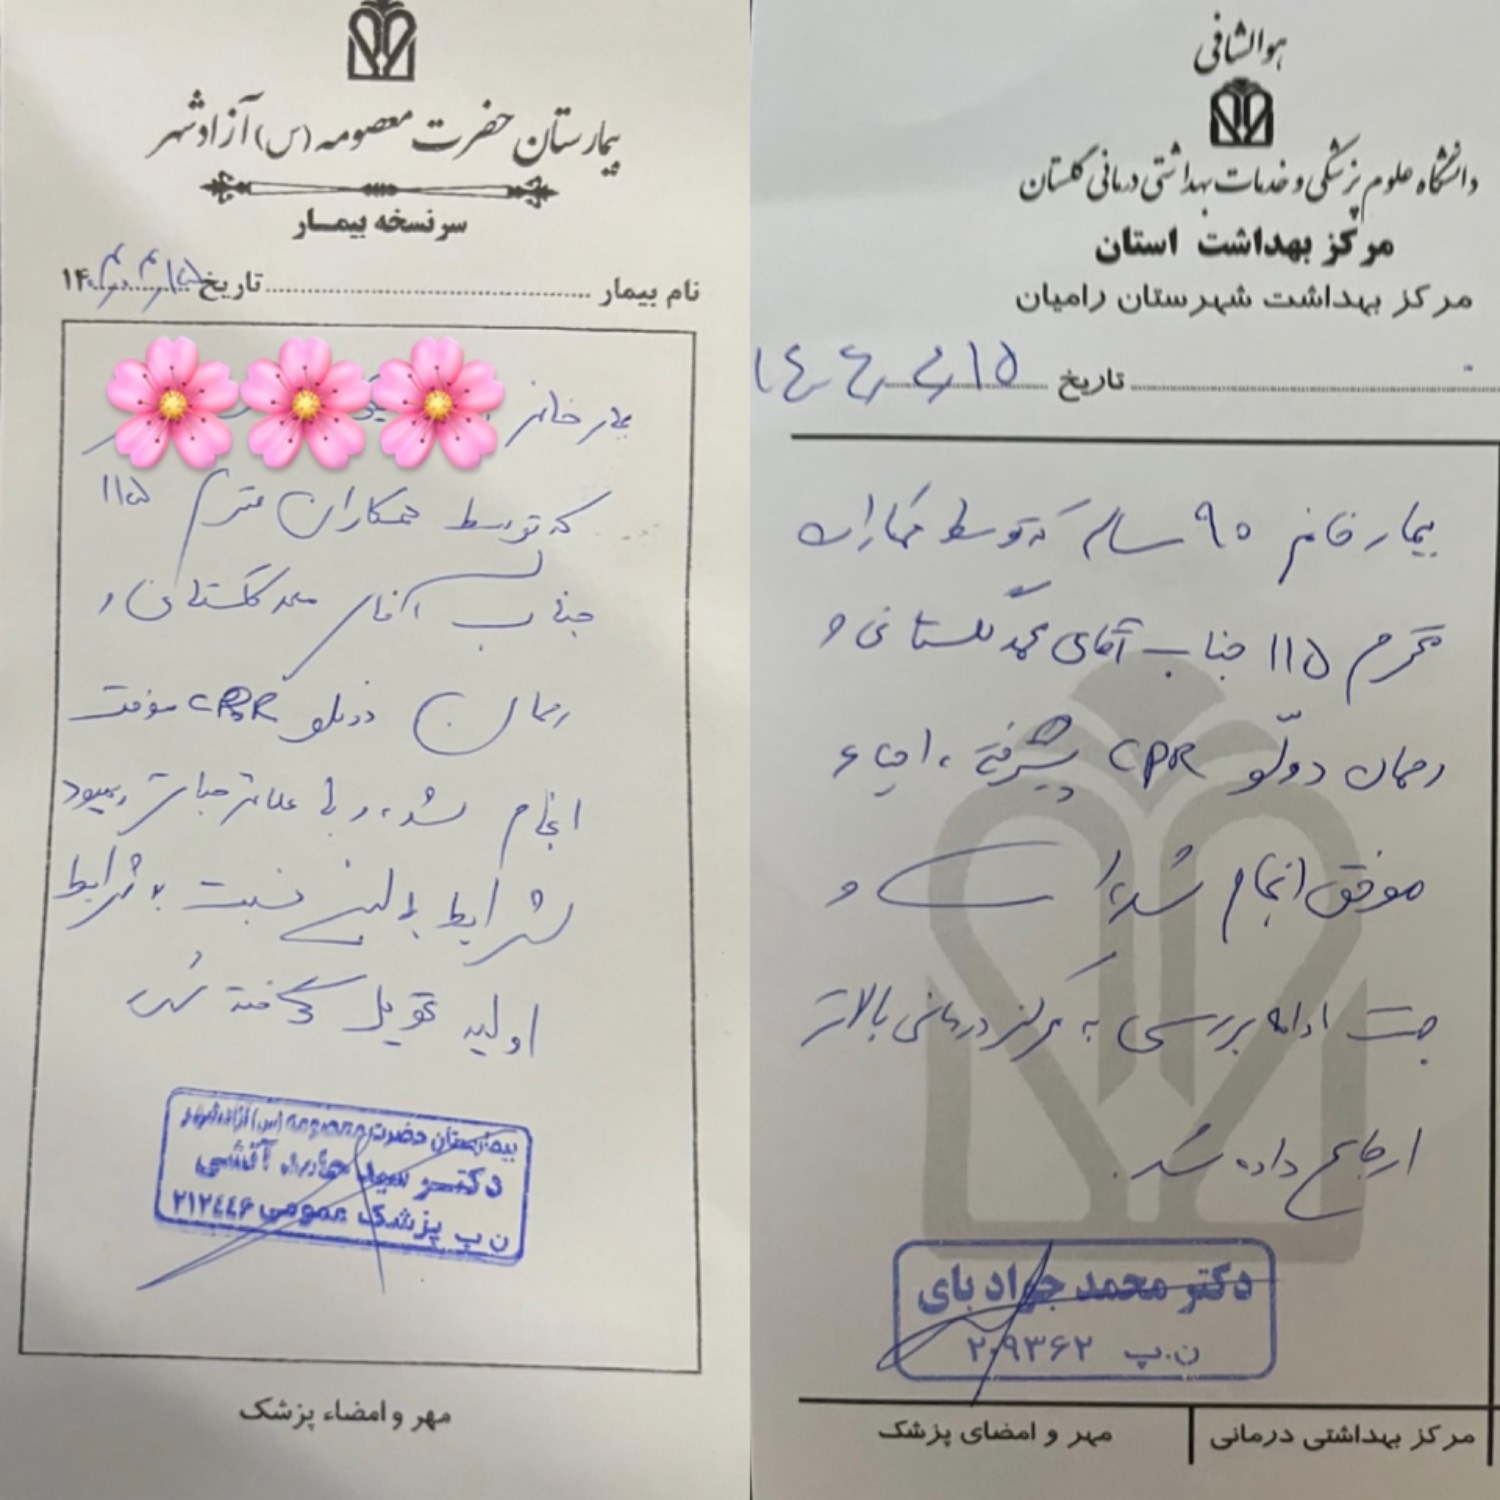 بیمارستان حضرت معصومه (س) آزادشهر
سرنسخه بیمار
نام بیمار تاریخ
بیمار خانم
که توسط همکاران محترم ۱۱۵
جناب آقای محمد گلستانی و
رحمان دوللو CPR موفقت
انجام شده و با علائم حیاتی و بهبود
شرایط بالینی نسبت به شرایط
اولیه تحویل گرفته شد
بیمارستان حضرت معصومه (س) آزادشهر
دکتر سید آتشی
ن پ پزشک عمومی ۲۱۲۴۴۶
مهر و امضاء پزشک
هوالشافی
دانشگاه علوم پزشکی و خدمات بهداشتی درمانی گلستان
مرکز بهداشت استان
مرکز بهداشت شهرستان رامیان
تاریخ ۱۴۰۴/۴/۱۵
بیمار خانم ۹۰ ساله که توسط همکاران
محترم ۱۱۵ جناب آقای محمد گلستانی و
رحمان دولّو CPR پیشرفته ، احیاء
موفق انجام شده است و
جهت ادامه بررسی به مرکز درمانی بالاتر
ارجاع داده شد.
دکتر محمد جواد بای
ن.پ ۲۰۹۳۶۲
مرکز بهداشتی درمانی مهر و امضای پزشک